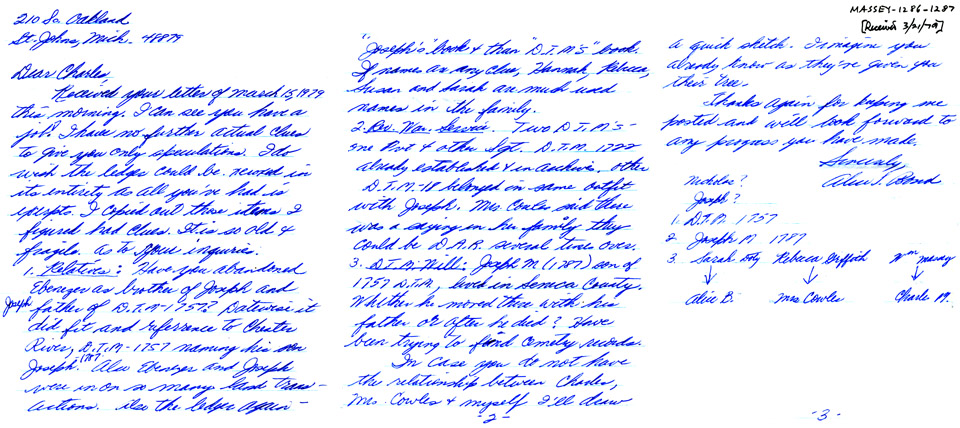 MASSEY-1286-1287
[Received 3/21/79]
210 So. Oakland
St. Johns, Mich. 48879
Dear Charles,
Received your letter of March 15, 1979
this morning. I can see you have a
job! I have no further actual clues
to give you only speculations. I do
wish the ledger could be viewed in
its entirety as all you've had is
exerpts. I copied out those items I
figured had clues. It is so old &
fragile. as to your inquiries.
1. Relatives: Have you abandoned
Ebenezer as brother of Joseph and
Joseph father of D.T.M-1757? Datewise it
did fit, and referrence to Chester
River, D.T.M-1757 naming his son
Joseph-1787. Also Ebenezer and Joseph
were in on so many land trans-
actions. Also the ledger again -
"Joseph's" book & than "D.T.M's" book.
If names are any clue, Hannah, Rebecca,
Susan and Sarah are much used
names in the family.
2. Rev. War. Service. Two D.T.M's -
one Pvt & other Sgt. D.T.M. 1722
already established & in archives. Other
D.T.M-18 belonged in same outfit
with Joseph. Mrs Cowles said there
was a saying in her family they
could be D.A.R. several times over.
3. D.T.M. Will: Joseph M (1787) son of
1757 D.T.M., lived in Seneca County.
Whither he moved there with his
father or after he died? Have
been trying to find cemetry records.
In case you do not have
the relationship between Charles,
Mrs. Cowles & myself I'll draw
-2-
a quick sketch. I imagine you
already know as they've given you
their tree.
Thanks again for keeping me
posted and will look forward to
any progress you have made.
Sincerely
Alice I. Bond
Nicholas?
Joseph?
1. D.T.M. 1757
2 Joseph M 1787
3. Sarah Rebecca Griffith Wm massey
Alice B. Mrs Cowles Charles M.
-3-